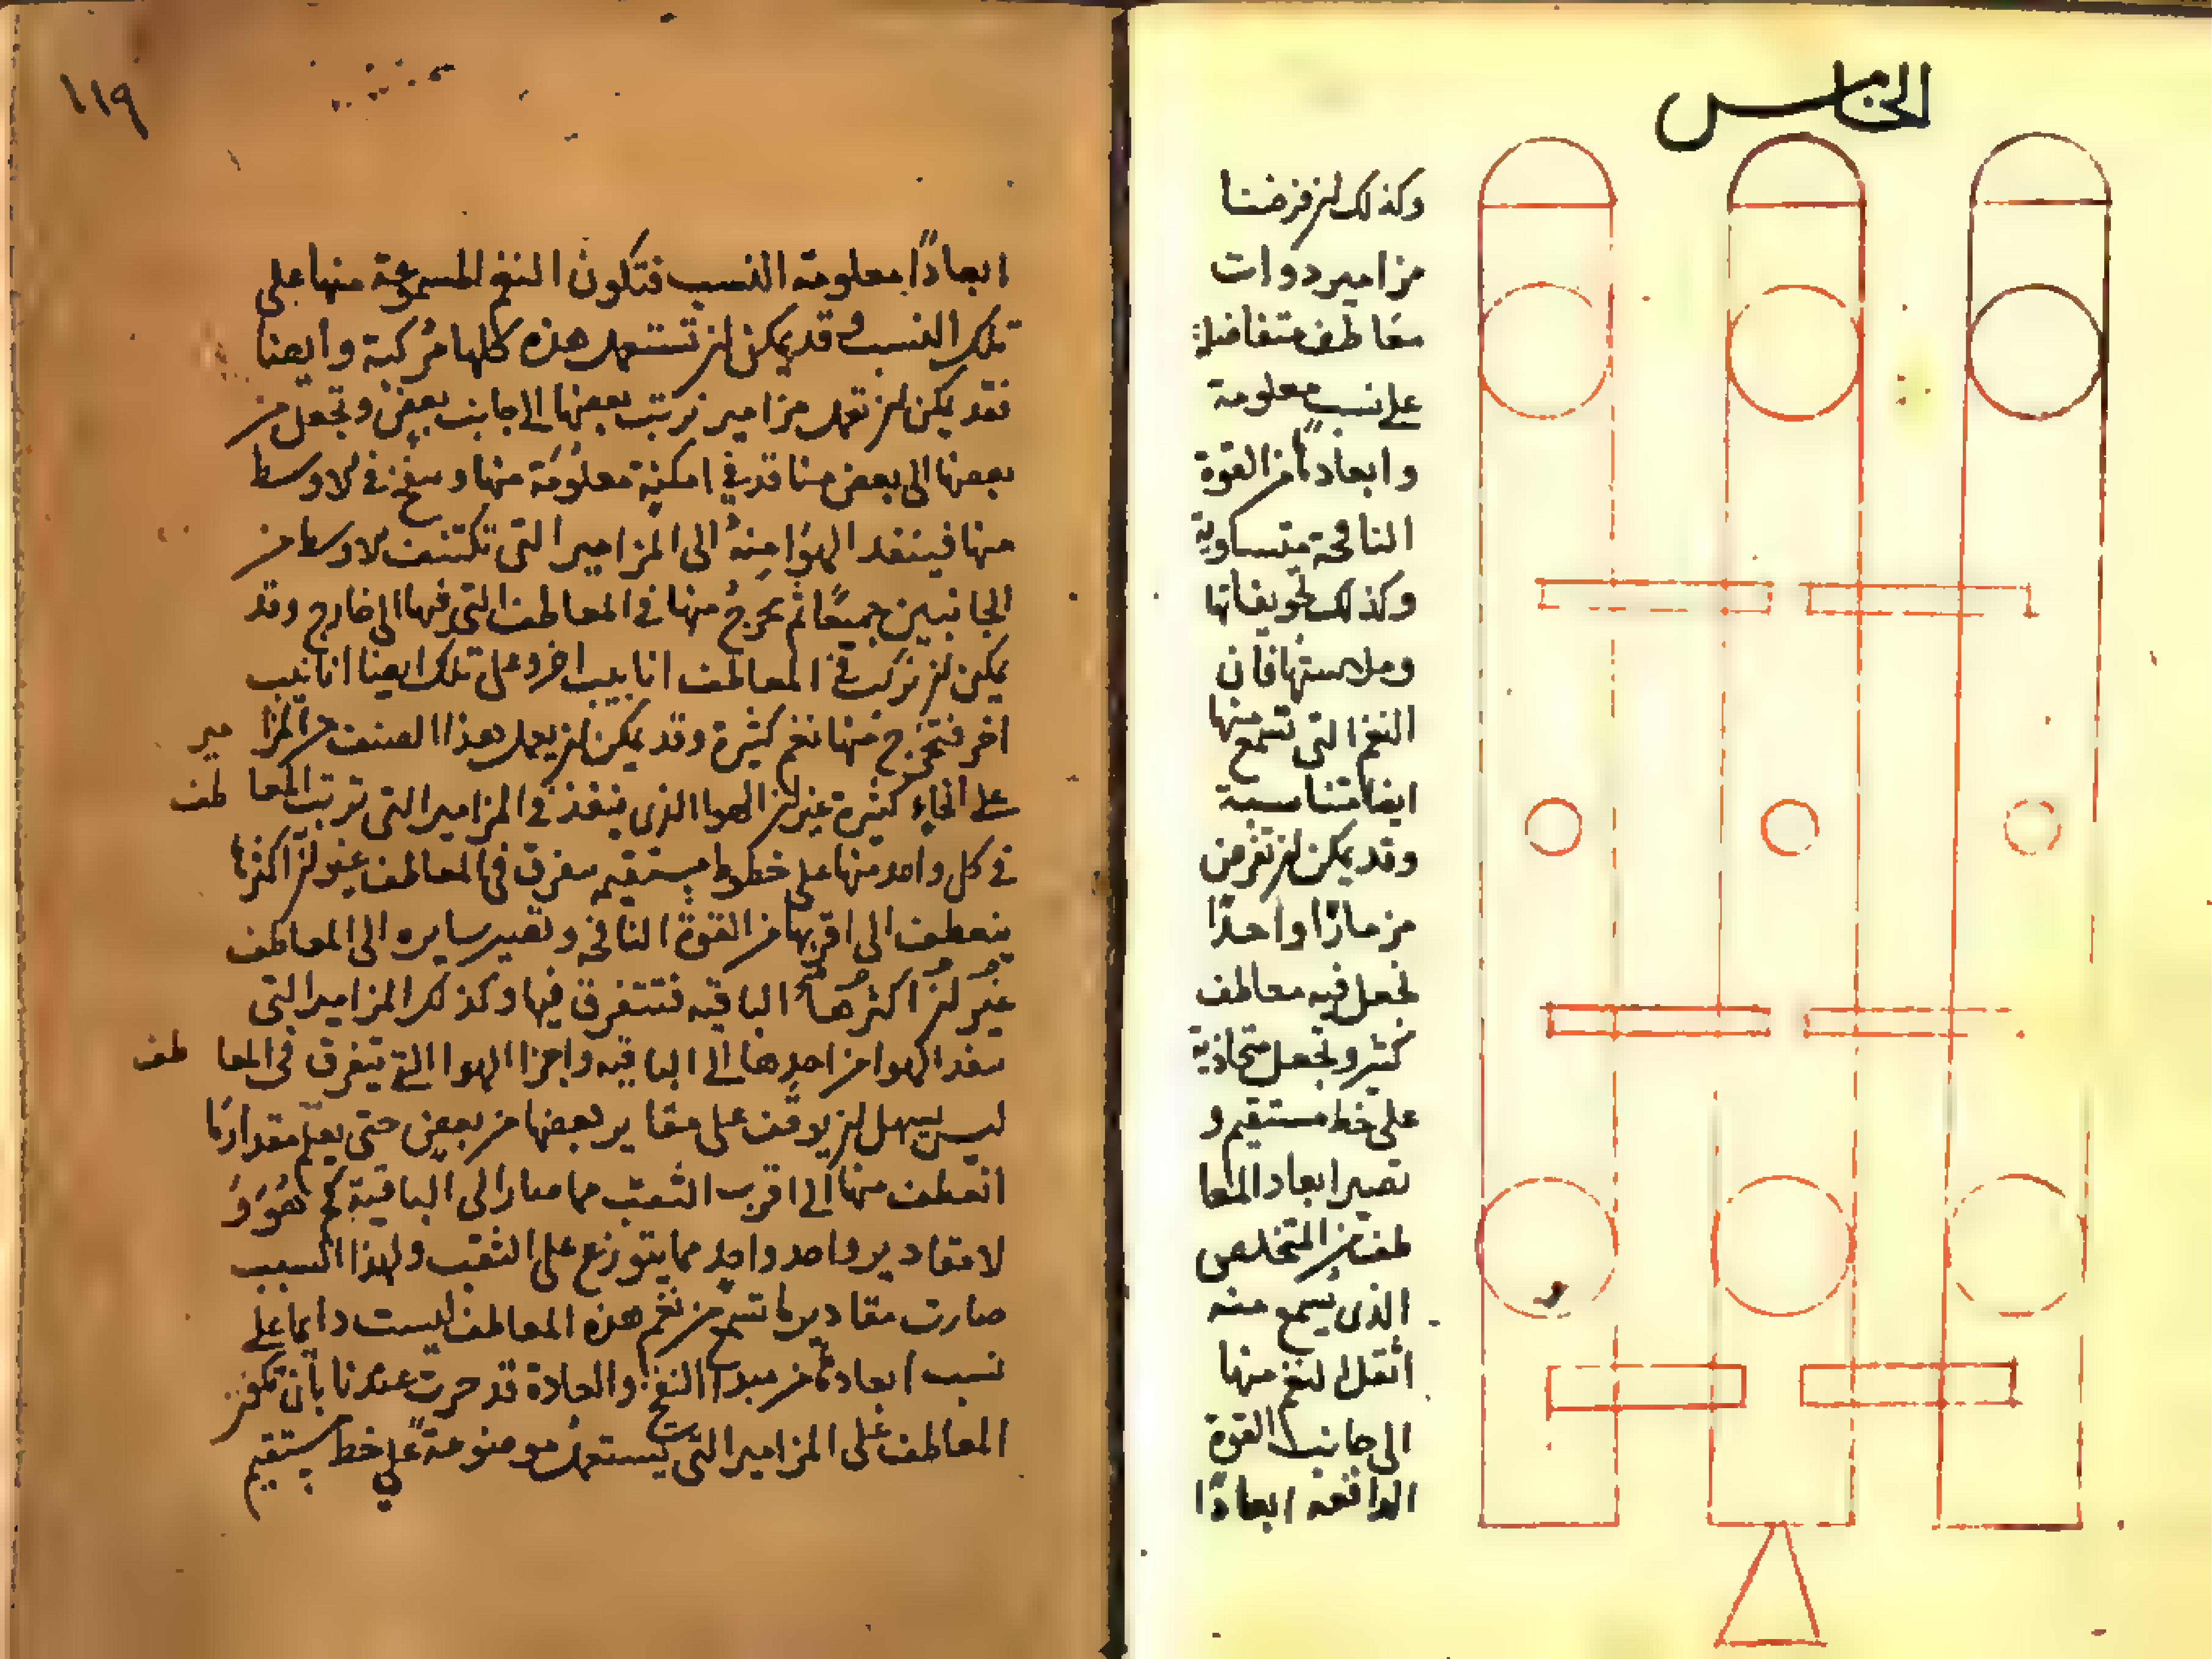 الخامس
وكذلك ان فرضنا
مزامير ذوات
معاطف متفاضلة
على نسب معلومة
وابعادها من القوة
النافخة متساوية
وكذلك تجويفاتها
وملاستها فان
النغم التي تسمع منها
ايضا متناسبة
وقد يمكن ان نفرض
مزمارًا واحدًا
نجعل فيه معاطف
كثيرة ونجعل متحاذية
على خط مستقيم و
تصير ابعاد المعا
طف من المتخلص
الذي يسمع منه
اثقل النغم منها
الى جانب القوة
الدافعه ابعادًا
١١٩
ابعادًا معلومة النسب فتكون النغم المسموعة منها على
تلك النسب وقد يمكن ان تستعمل هذه كلها مركبة وايضا
فقد يمكن ان تعمل مزامير نرتب بعضها الى جانب بعض ونجعل من
بعضها الى بعض منافذ في امكنة معلومة منها وينفخ في الاوسط
منها فينفذ الهوا منه الى المزامير التي تكتنف الاوسط من
الجانبين جميعًا ثم يخرج منها في المعاطف التي فيها الى خارج وقد
يمكن ان نركب في المعاطف انابيب اخر وعلى تلك ايضا انابيب
اخر فتخرج منها نغم كثيرة وقد يمكن ان يعمل هذا الصنف من المزا مير
على انحاء كثيرة غير ان الهوا الذي ينفذ في المزامير التي ترتب المعا طف
في كل واحد منها على خط مستقيم يتفرق في المعاطف غير ان اكثرها
ينعطف الى اقربها من القوة النافخه وتصير سايره الى المعاطف
غير ان اكثرها الباقيه فتتفرق فيها وكذلك المزامير التي
ينفذ الهوا من احدها الى الباقيه واجزا الهوا التي تتفرق في المعا طف
ليس يسهل ان يوقف على مقايير بعضها من بعض حتى يعلم مقدار ما
انعطف منها الى اقرب الثقب مما صار الى الباقية كم هو و
لا مقادير واحد واحد مما يتوزع على الثقب ولهذا السبب
صارت مقادير ما تسمع من نغم هذه المعاطف ليست دايما على
نسب ابعادها من مبدا النفخ والعادة قد جرت عندنا بان تكون
المعاطف على المزامير التي تستعمل موضوعة على خط مستقيم